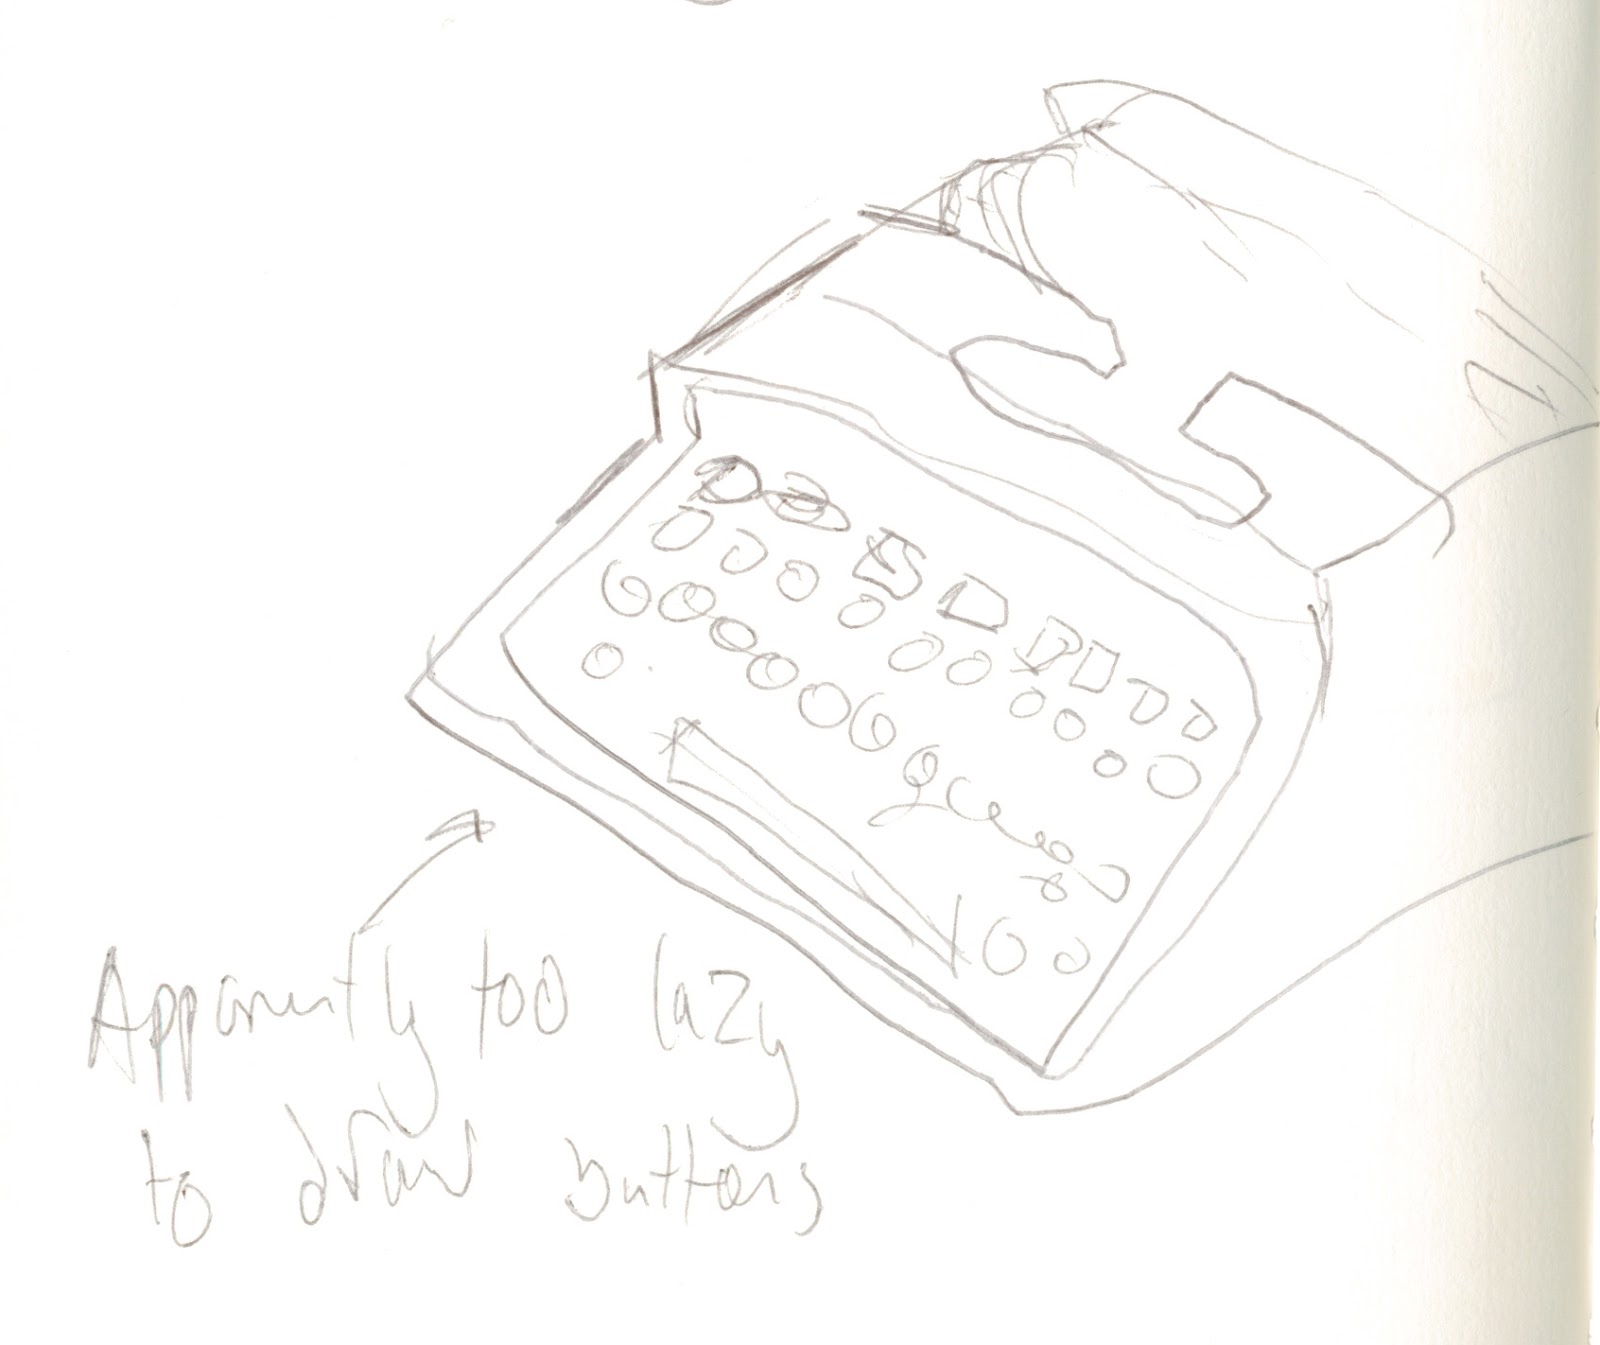 Apparently too lazy
to draw buttons